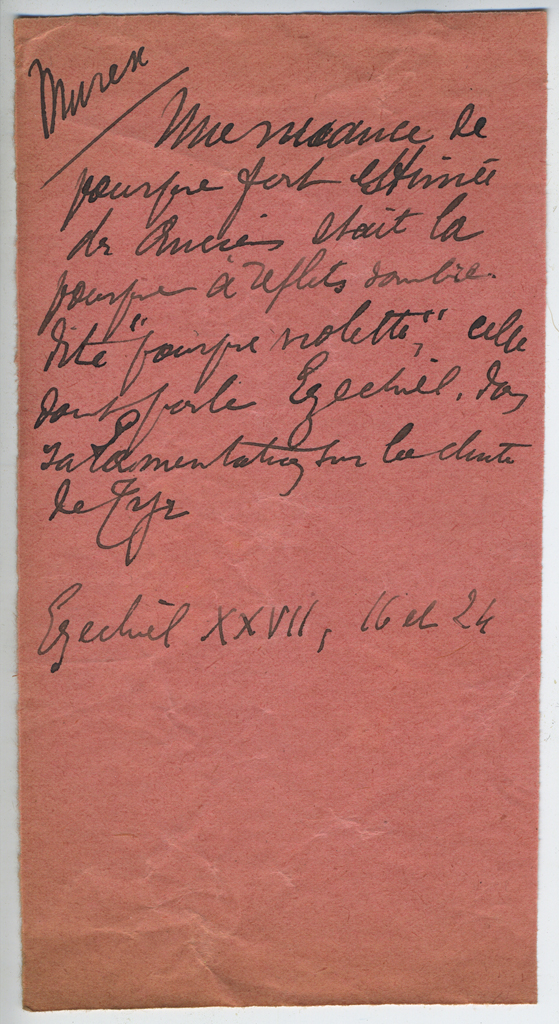 Murex
Une nuance de
pourpre fort estimée
des Anciens était la
pourpre à reflets sombres
dite "pourpre violette", celle
dont parle Ezechiël, dans
sa Lamentation sur la chute
de Tyr
Ezechiël XXVII, 16 et 24